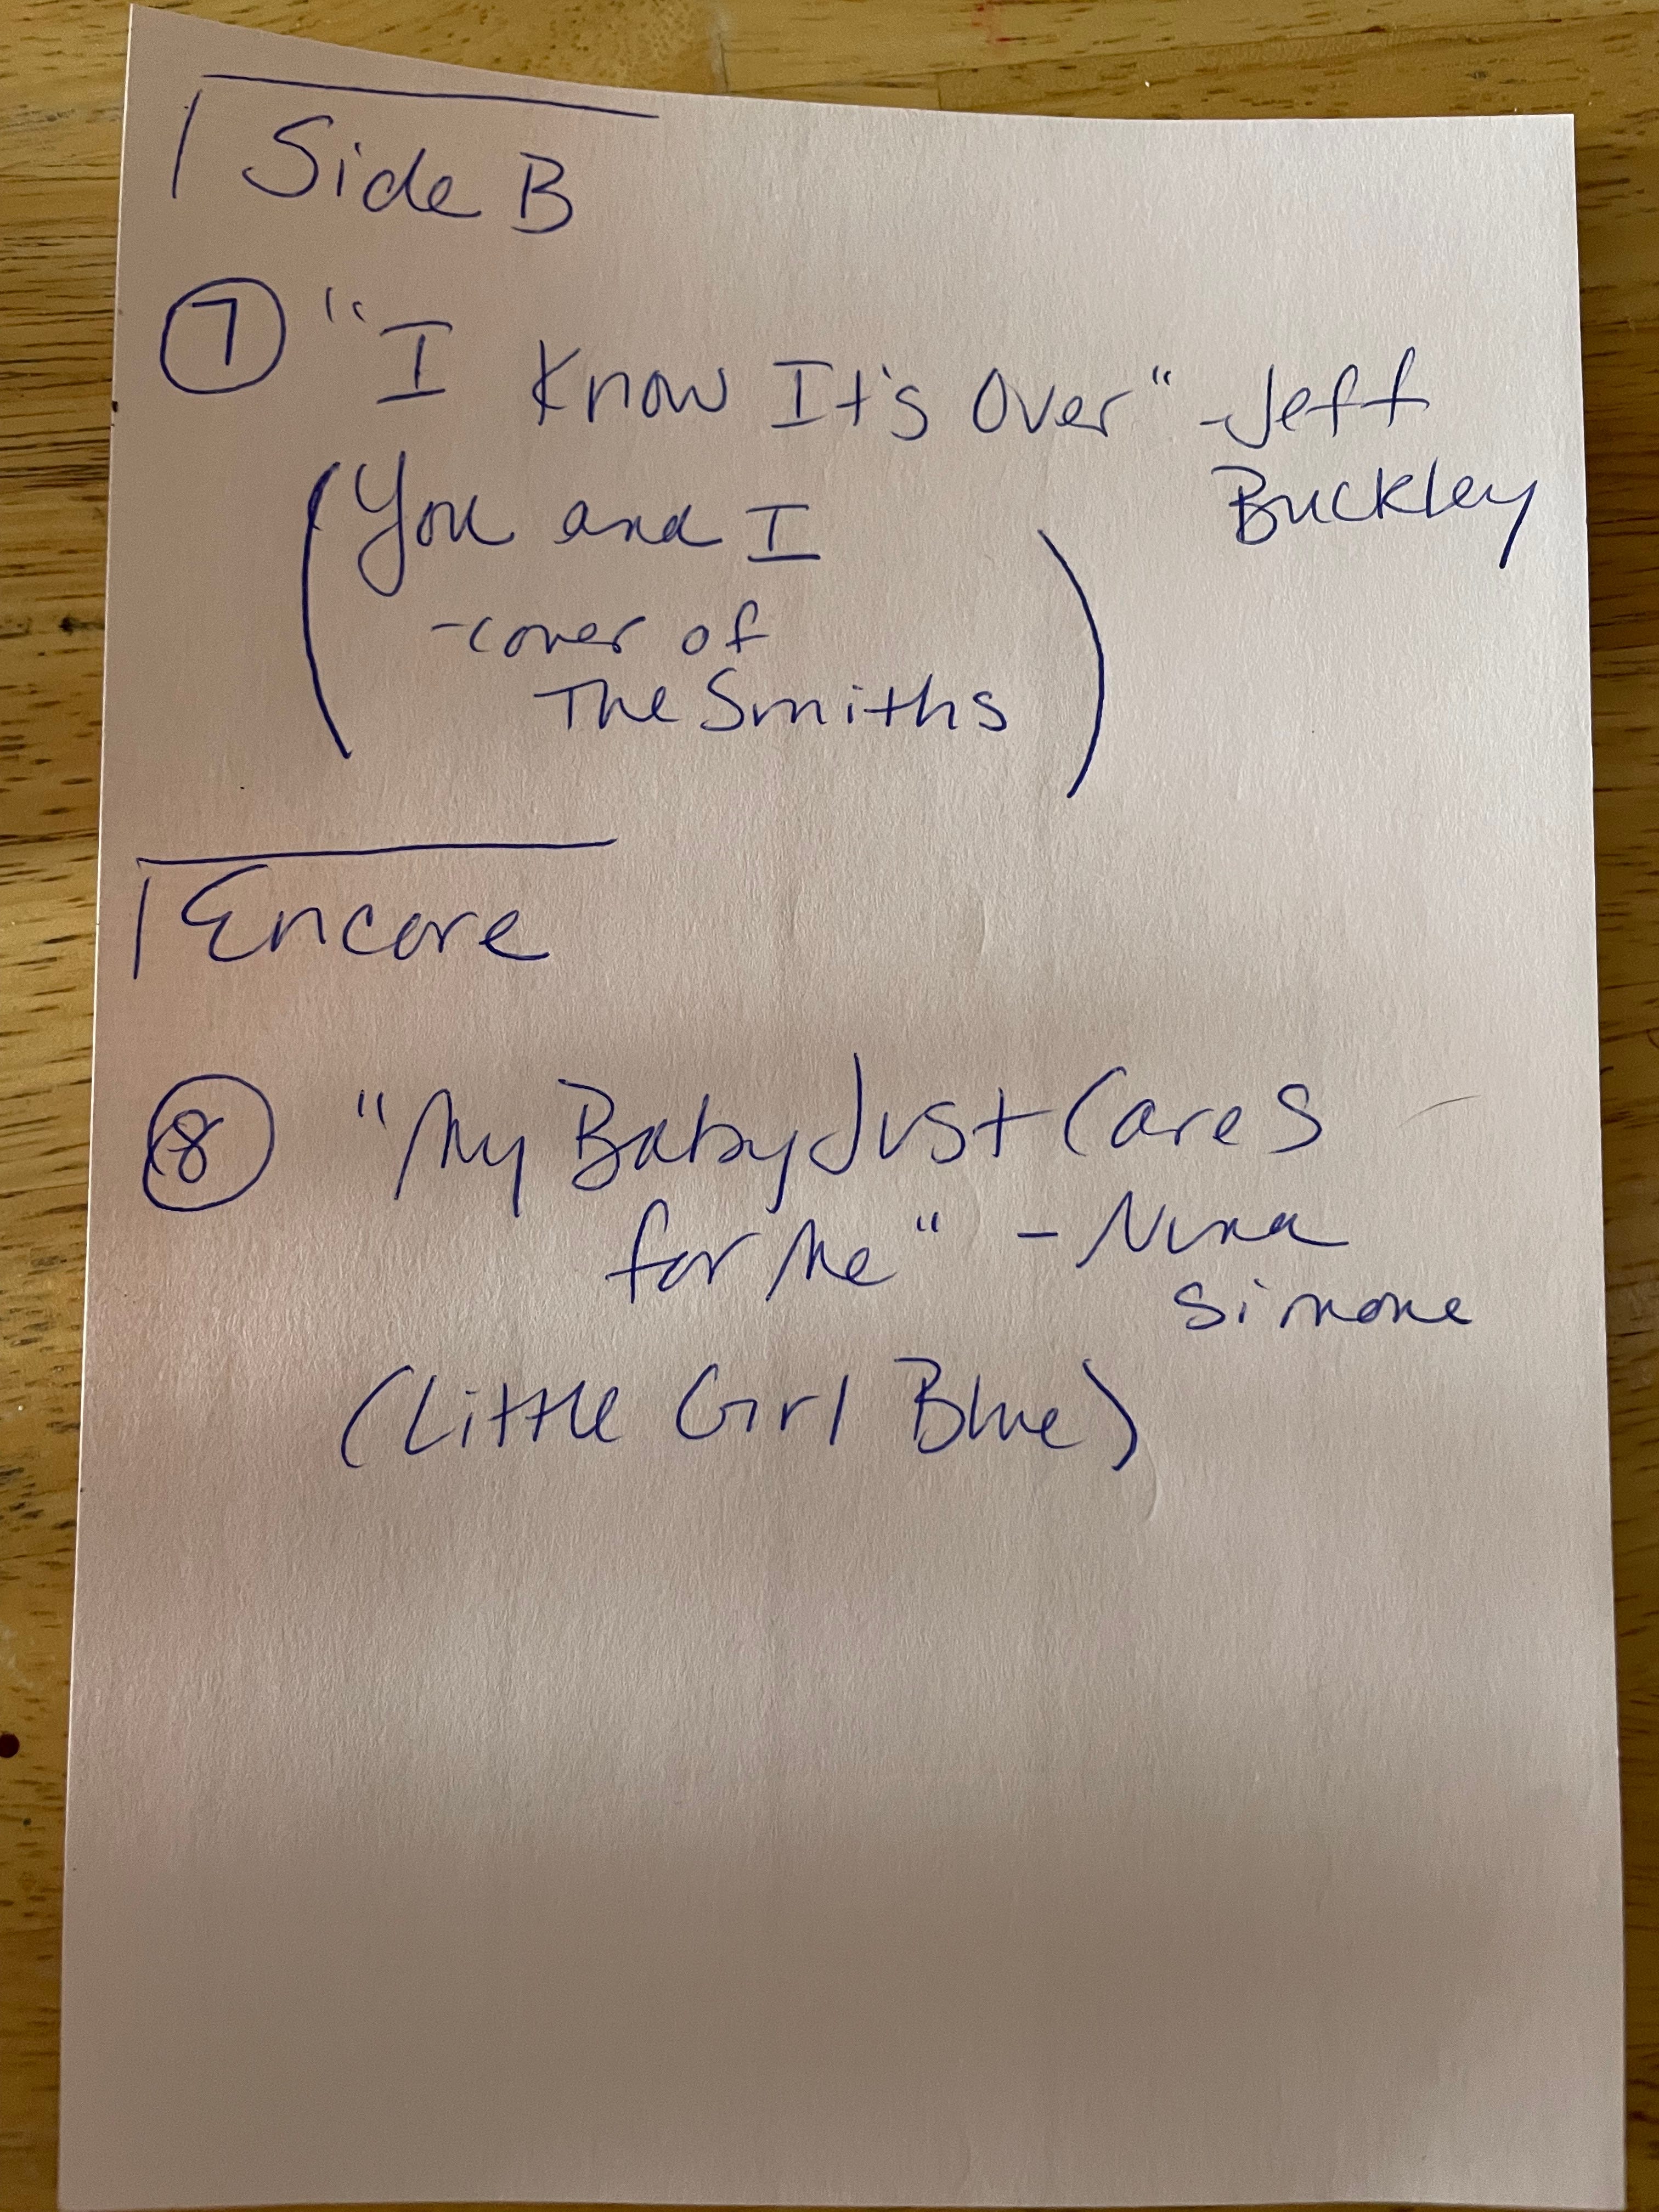 Side B
⑦ "I Know It's Over" - Jeff
Buckley
(You and I
- cover of
The Smiths)
Encore
⑧ "My Baby Just Cares
for Me" - Nina
Simone
(Little Girl Blue)